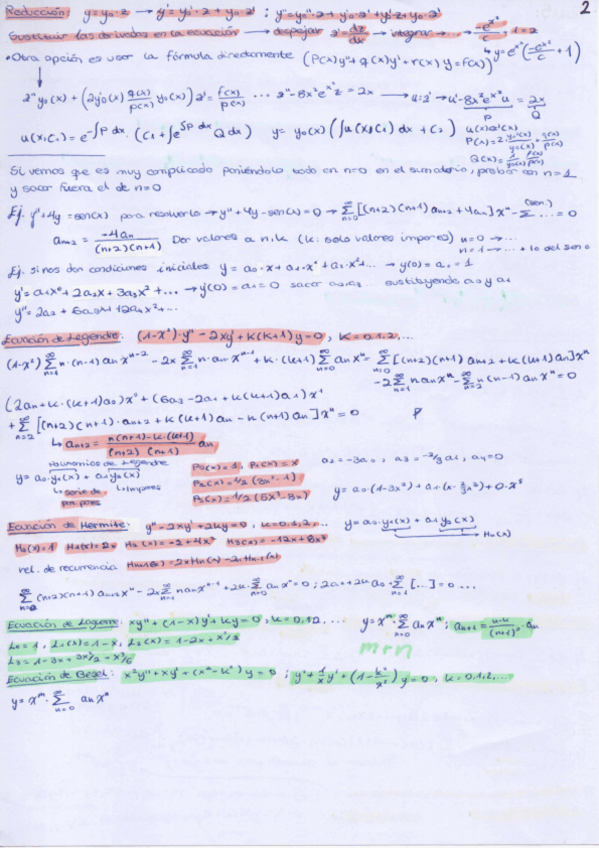 2
Reducción: y=y₀·z → y'=y₀'·z + y₀·z' ; y''=y₀''·z + y₀'·z' + y₀'z'+y₀·z''
Sustituir las derivadas en la ecuación → despejar z'=dz/dx → integrar → ...
• Otra opción es usar la fórmula directamente (P(x)y''+q(x)y'+r(x)y=f(x))
z''y₀(x) + (2y₀'(x) q(x)/p(x) y₀(x)) z' = f(x)/p(x) ... z''-8x²e^x² z' = 2x → u=z'
u(x,c₁) = e^-∫P dx · (c₁ + ∫e^∫P dx Q dx) y = y₀(x) (∫u(x,c₁) dx + c₂)
Si vemos que es muy complicado poniéndolo todo en n=0 en el sumatorio, probar con n=1
y sacar fuera el de n=0
Ej. y''+4y=sen(x) para resolverlo → y''+4y-sen(x)=0 → ∑ [(n+2)(n+1)aₙ₊₂+4aₙ]xⁿ - ∑ ... = 0
aₙ₊₂ = -4aₙ/(n+2)(n+1) Dar valores a n,k (k: solo valores impares) n=0 → ...
n=1 → ... + lo del seno
Ej. si nos dan condiciones iniciales y = a₀·x+a₁·x¹+a₂·x²+... → y(0)=a₀=1
y'=a₁x⁰+2a₂x+3a₃x²+... → y'(0)=a₁=0 sacar a₂,a₃... sustituyendo a₀ y a₁
y''=2a₂+6a₃x+12a₄x²...
Ecuación de Legendre: (1-x²)·y''-2xy'+k(k+1)y=0, k=0,1,2,...
(1-x²) ∑ n·(n-1)aₙ xⁿ⁻² - 2x ∑ n·aₙ xⁿ⁻¹ + k·(k+1) ∑ aₙ xⁿ = ∑ [(n+2)(n+1)aₙ₊₂+k(k+1)aₙ]xⁿ
-2∑ n aₙ xⁿ - ∑ n(n-1)aₙ xⁿ = 0
(2aₙ+k·(k+1)a₀)x⁰ + (6a₃-2a₁+k(k+1)a₁)x¹
+ ∑ [(n+2)(n+1)·aₙ₊₂+k(k+1)aₙ-n(n+1)aₙ]xⁿ = 0
aₙ₊₂ = n(n+1)-k·(k+1)/(n+2)(n+1) aₙ
Polinomios de Legendre
y = a₀y₀(x)+a₁y₁(x)
serie de pares impares
P₀(x)=1, P₁(x)=x
P₂(x)=1/2(3x²-1)
P₃(x)=1/2(5x³-3x)
a₂=-3a₀, a₃=-2/3a₁, a₄=0
y=a₀(1-3x²)+a₁(x-2/3x³)+0·x⁴
Ecuación de Hermite: y''-2xy'+2ky=0, k=0,1,2,... y=a₀·y₁(x)+a₁y₂(x)
H₀(x)=1 H₁(x)=2x H₂(x)=-2+4x² H₃(x)=-12x+8x³ Hₙ(x)
rel. de recurrencia Hₙ₊₁(x)=2xHₙ(x)-2nHₙ₋₁(x)
∑ (n+2)(n+1)aₙ₊₂xⁿ - 2x ∑ n aₙ xⁿ⁻¹ + 2k·∑ aₙxⁿ = 0 ; 2a₂+2k a₀+∑ [...]=0 ...
Ecuación de Laguerre: xy''+(1-x)y'+ky=0, k=0,1,2,... y=xᵐ·∑ aₙxⁿ ; aₙ₊₁ = n-k/(n+1)² · aₙ
L₀=1, L₁(x)=1-x, L₂(x)=1-2x+x²/2
m+n
L₃=1-3x+3x²/2-x³/6
Ecuación de Bessel: x²y''+xy'+(x²-k²)y=0 ; y''+1/x y'+(1-k²/x²)y=0, k=0,1,2,...
y=xᵐ·∑ aₙxⁿ